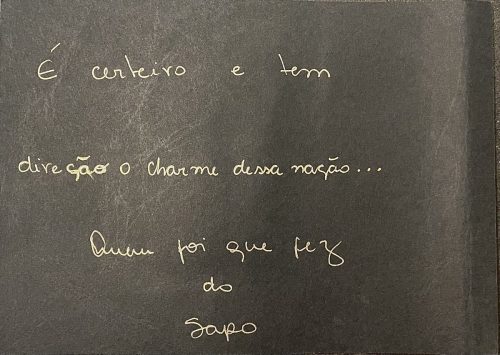 É certeiro e tem
direção o charme dessa nação...
Quem foi que fez
do
sapo